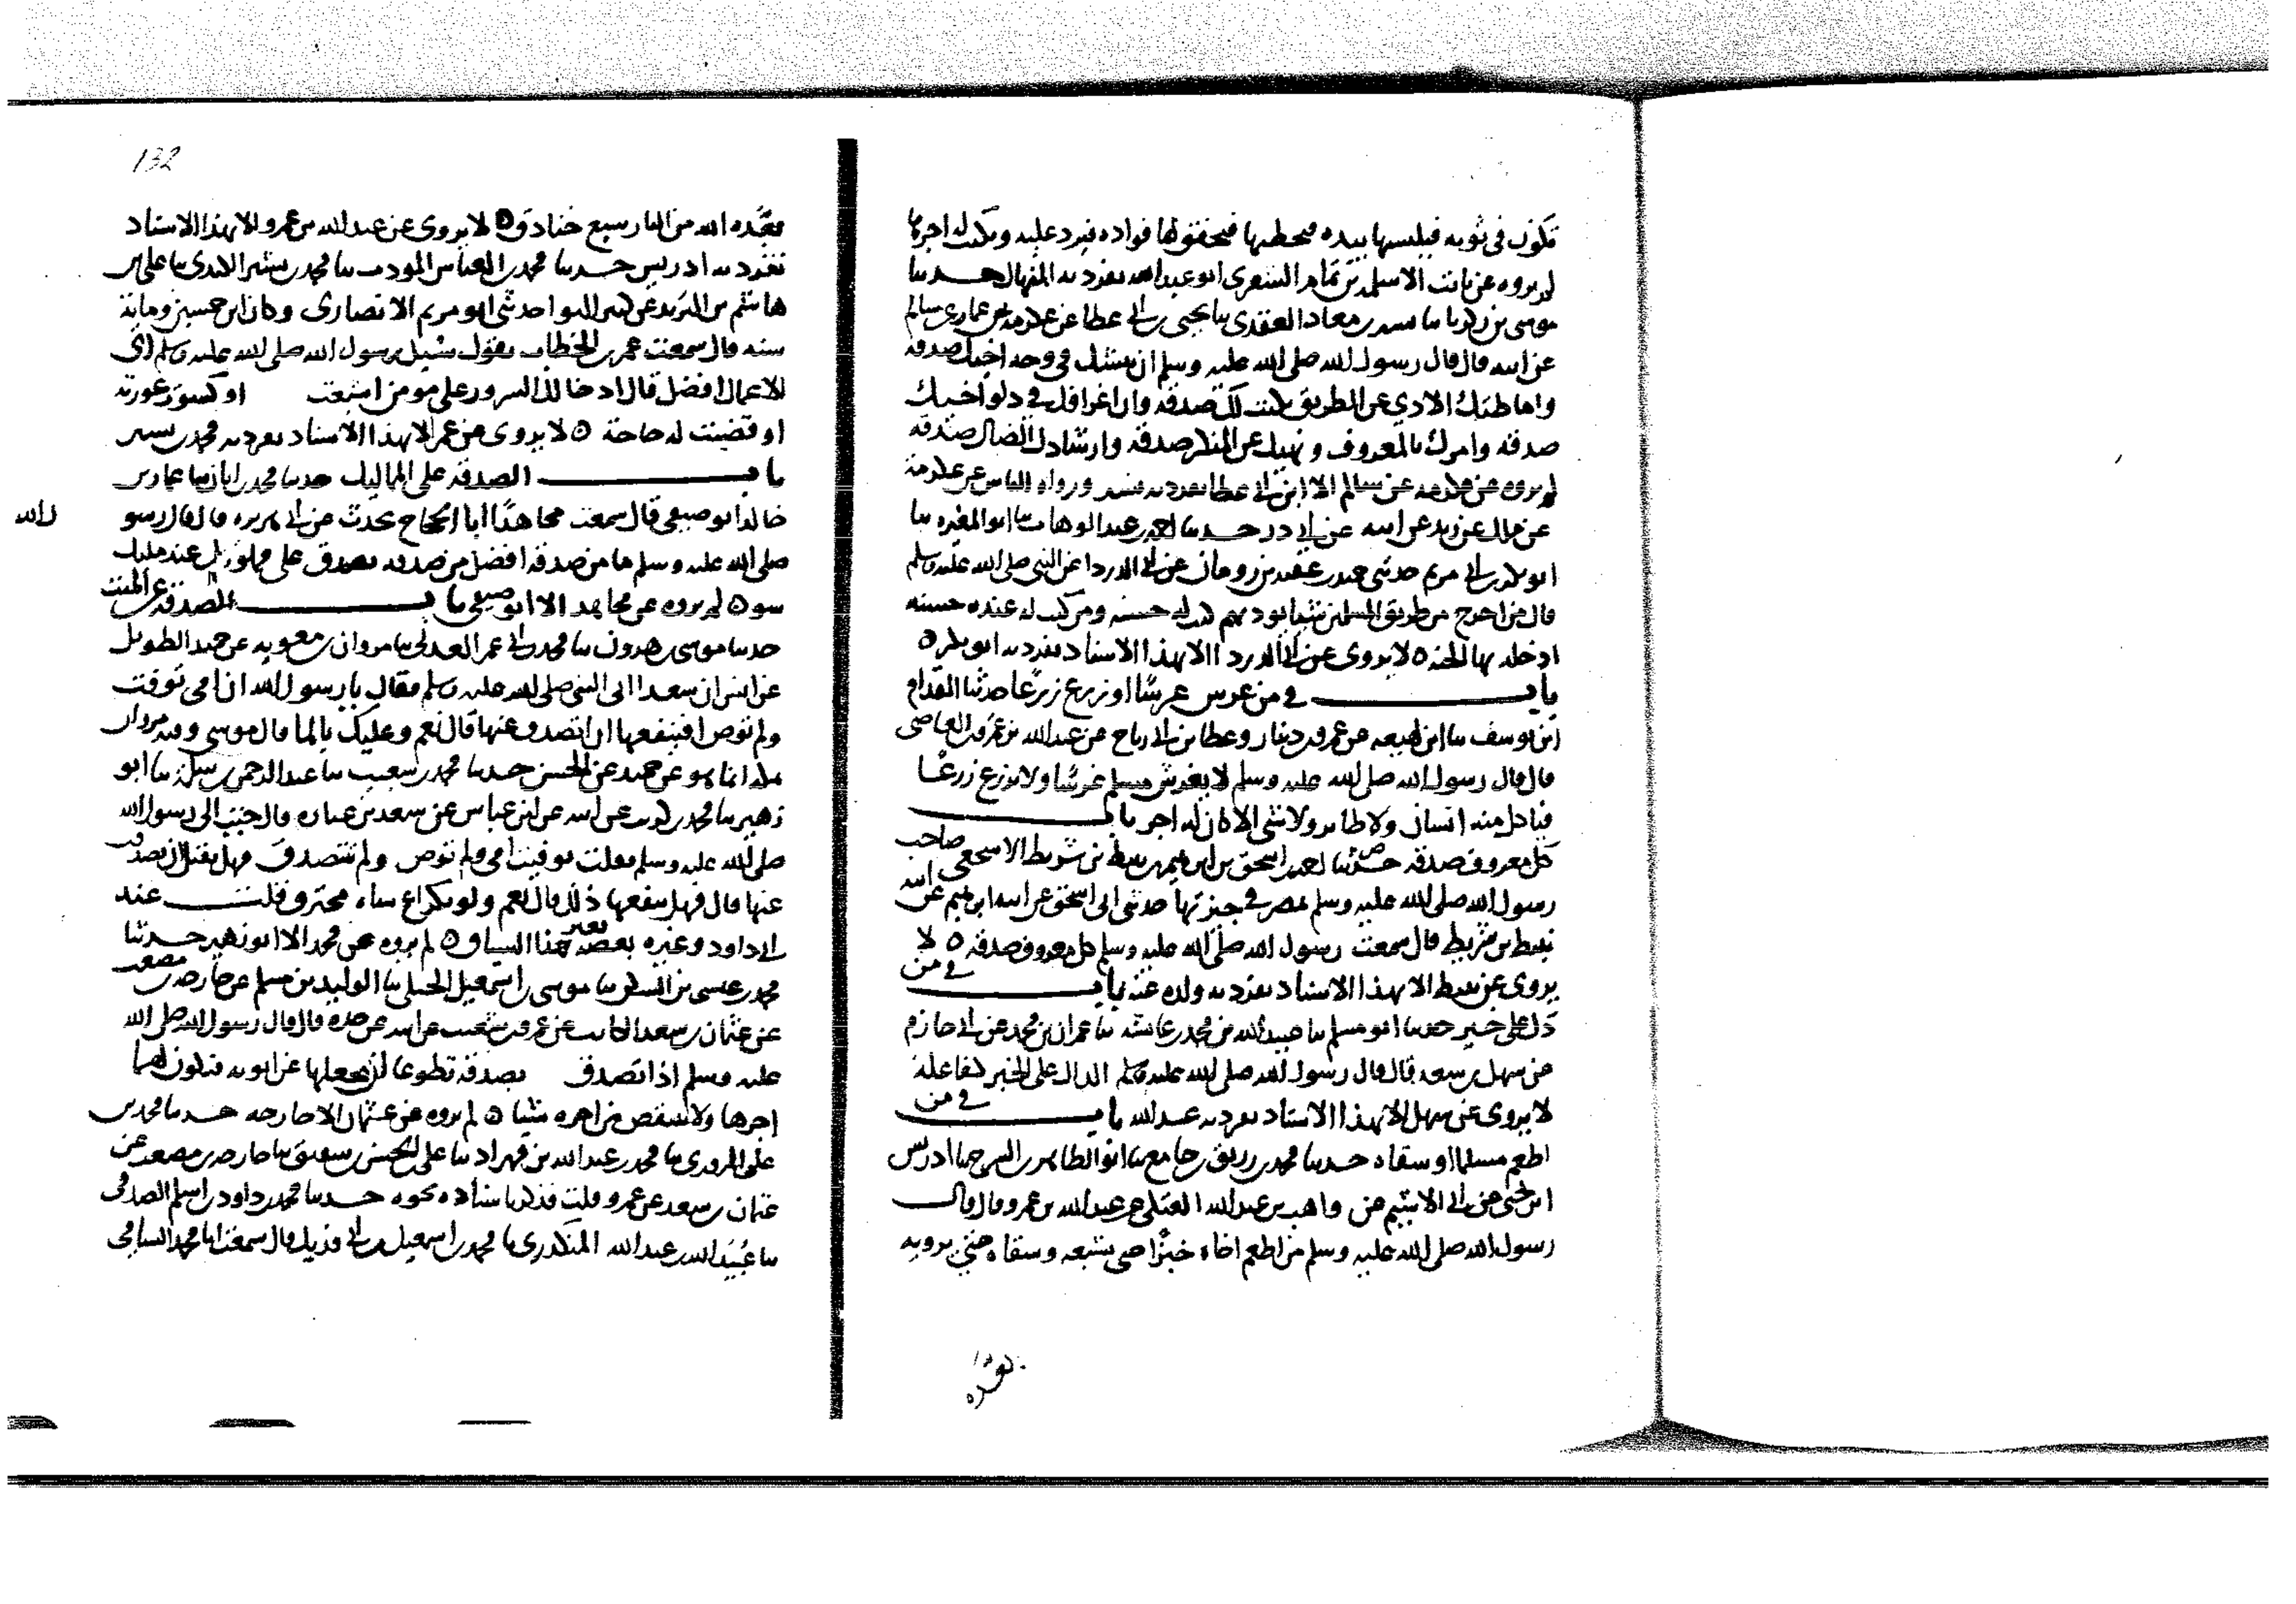 تكون في ثوبه فيلمسها بيده فيخطيها فيخفق لها فواده فيرد عليه ويكتب له اجرها
لم يروه عن ثابت الا سلمة بن تمام الشعري ابو عبد الله تفرد به المنهال حدثنا
موسى بن زكريا نا بشر بن معاد العقدي نا يحيى بن ابي عطا عن عكرمة بن عمار عن سالم
عن ابيه قال قال رسول الله صلى الله عليه وسلم ان تبسمك في وجه اخيك صدقة
واماطتك الاذى عن الطريق يكتب لك صدقة وان افراغك في دلو اخيك
صدقة وامرك بالمعروف ونهيك عن المنكر صدقة وارشادك الضال صدقة
لم يروه عن عكرمة عن سالم الا ابن ابي عطا تفرد به بشر ورواه الناس عن عكرمة
عن مالك بن مرثد عن ابيه عن ابي ذر حدثنا احمد بن عبد الوهاب نا ابو المغيرة نا
ابو بكر بن ابي مريم حدثني حميد بن عقبة بن رومان عن ابي الدردا عن النبي صلى الله عليه وسلم
قال من اخرج من طريق المسلمين شيئا يوذيهم كتب له حسنة ومن كتب له عنده حسنة
ادخله بها الجنة ٥ لا يروى عن ابي الدردا الا بهذا الاسناد تفرد به ابو بكر ٥
باب في من غرس غرسًا او زرع زرعًا حدثنا المقدام
ابن يوسف نا ابن لهيعة عن عمرو بن دينار وعطا بن ابي رباح عن عبد الله بن عمرو بن العاصي
قال قال رسول الله صلى الله عليه وسلم لا يغرس مسلم غرسًا ولا يزرع زرعًا
فياكل منه انسان ولا طاير ولا شي الا كان له اجر باب
كل معروف صدقة حدثنا احمد بن اسحق بن ابرهيم بن نبيط بن شريط الاشجعي صاحب
رسول الله صلى الله عليه وسلم بمصر في جيزتها حدثني ابي اسحق عن ابيه ابرهيم عن ابيه
نبيط بن شريط قال سمعت رسول الله صلى الله عليه وسلم كل معروف صدقة ٥ لا
يروى عن نبيط الا بهذا الاسناد تفرد به ولده عنه باب في من
دل على خير حدثنا ابو مسلم نا عبيد الله بن محمد بن عائشة نا عمران بن محمد عن ابي حازم
عن سهل بن سعد قال قال رسول الله صلى الله عليه وسلم الدال على الخير كفاعله
لا يروى عن سهل الا بهذا الاسناد تفرد به عبد الله باب في من
اطعم مسلما او سقاه حدثنا محمد بن رزيق بن جامع نا ابو الطاهر بن السرح نا ادريس
ابن يحيى عن ابي الاشيم عن واهب بن عبد الله المعافري عن عبد الله بن عمرو قال قال
رسول الله صلى الله عليه وسلم من اطعم اخاه خبزًا حتى يشبعه وسقاه حتى يرويه
بعّده
132
بعّده الله من النار سبع خنادق ٥ لا يروى عن عبد الله بن عمرو الا بهذا الاسناد
تفرد به ادريس حدثنا محمد بن العباس المودب نا محمد بن بشير الكندي نا علي بن
هاشم بن البريد عن كثير النوا حدثني ابو مريم الانصاري وكان ابن خمسين وماية
سنة قال سمعت عمر بن الخطاب يقول سئل رسول الله صلى الله عليه وسلم اي
الاعمال افضل قال ادخالك السرور على مومن اشبعت او كسوت عورته
او قضيت له حاجة ٥ لا يروى عن عمر الا بهذا الاسناد تفرد به محمد بن بشير
باب الصدقة على المماليك حدثنا محمد بن ابان نا عمار بن
خالد ابو صيفي قال سمعت مجاهدًا ابا الحجاج يحدث عن ابي هريرة قال قال رسو
ل الله
صلى الله عليه وسلم ما من صدقة افضل من صدقة تصدق على مملوك عند مليك
سو ٥ لم يروه عن مجاهد الا ابو صيفي باب الصدقة عن الميت
حدثنا موسى بن هرون نا محمد بن ابي عمر العدني نا مروان بن معوية عن حميد الطويل
عن انس ان سعدا اتى النبي صلى الله عليه وسلم فقال يا رسول الله ان امي توفيت
ولم توص افينفعها ان اتصدق عنها قال نعم وعليك بالما قال موسى وهم مروان
هذا انما هو عن حميد عن الحسن حدثنا محمد بن شعيب نا عبد الرحمن بن سلمة نا ابو
زهير نا محمد بن كريب عن ابيه عن ابن عباس عن سعد بن عبادة قال جئت الى رسول الله
صلى الله عليه وسلم فقلت توفيت امي ولم توص ولم تتصدق فهل يقبل ان تصدقت
عنها قال فهل ينفعها ذلك قال نعم ولو بكراع شاة محترق قلت عند
ابي داود وغيره بعضه بغير هذا السياق ٥ لم يروه عن محمد الا ابو زهير حدثنا
محمد بن عيسى بن السكن نا موسى بن اسمعيل الجبلي نا الوليد بن مسلم عن خارجة بن مصعب
عن عثمان بن سعد الكاتب عن عمرو بن شعيب عن ابيه عن جده قال قال رسول الله صلى الله
عليه وسلم اذا تصدق بصدقة تطوعا ان يجعلها عن ابويه فتكون لهما
اجرها ولا ينقص من اجره شيئا ٥ لم يروه عن عثمان الا خارجة حدثنا محمد بن
علي المروزي نا محمد بن عبد الله بن قهزاد نا علي بن الحسن بن شقيق نا خارجة بن مصعب عن
عثمان بن سعد عن عمرو قلت فذكر باسناده نحوه حدثنا محمد بن داود بن اسلم الصدفي
نا عُبيد الله بن عبد الله المنكدري نا محمد بن اسمعيل بن ابي فديك قال سمعت ابا محمد الشامي